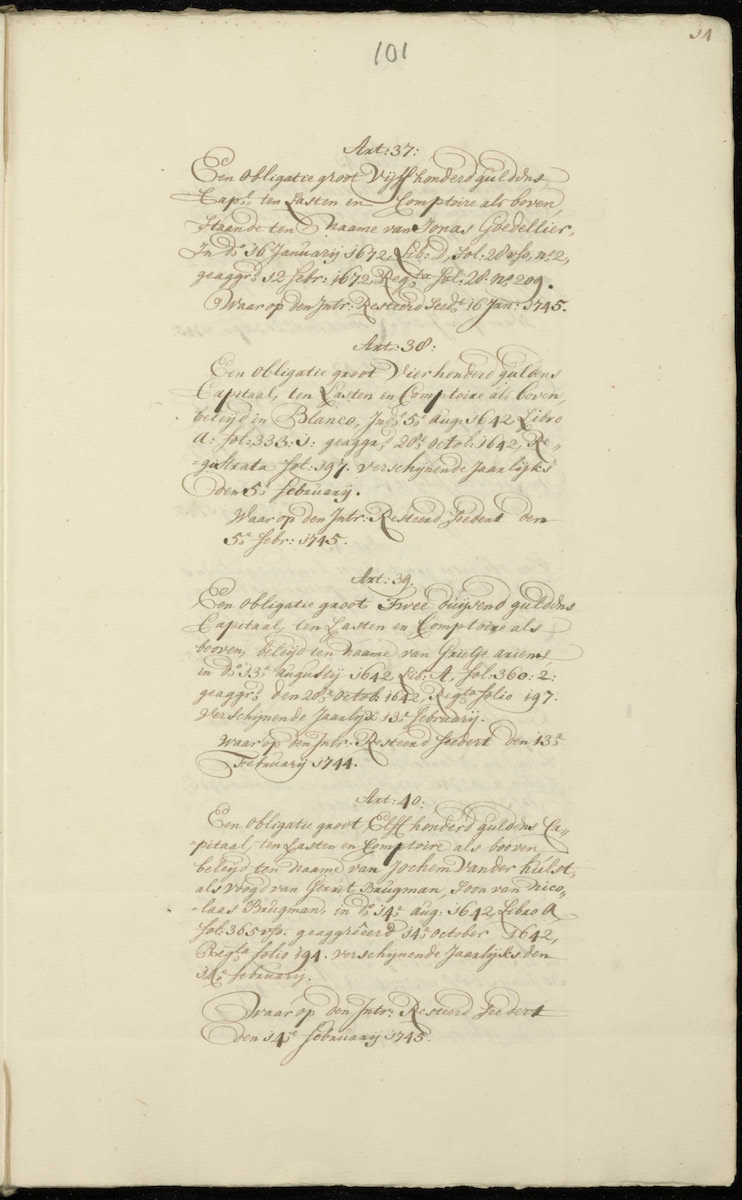 101
51
Art: 37:
Een obligatie groot Vijffhonderd guldens
Capl: ten Lasten en Comptoire als boven,
staande ten Naame van Jonas Goedellier,
In do: 16 Januarij 1672, Lib: D, fol: 28 vso, no. 2,
geaggrd: 12 febr: 1672, Regta fol: 28. no 209.
Waar op den Intr: Resteerd seedt: 16 Jan: 1745.
Art: 38:
Een obligatie groot Vierhonderd guldens
Capitaal, ten Lasten en Comptoire als boven,
beleijd in Blanco, In do: 5e: aug: 1642 Libro
A: fol: 333: 1: geaggr, 20e: octob: 1642, Re„
„gistrata fol: 197. verschijnende Jaarlijks
den 5e: februarij.
Waar op den Intr: Resteerd seedert den
5e: febr: 1745.
Art: 39.
Een obligatie groot Twee duijsend guldens
Capitaal, ten Lasten en Comptoire als
booven, beleijd ten naame van Grietje ariens
in do: 13e: augustij 1642 Lib: A, fol: 360: 2:
geaggrd: den 20e: Octob: 1642, Regta folio 197.
verschijnende Jaarlijx 13e: februarij.
Waar op den Intr: Resteerd seedert den 13e:
Februarij 1744.
Art: 40:
Een obligatie groot Elff honderd guldens Ca„
„pitaal, ten Lasten en Comptoire als booven
beleijd ten Naame van Jochem Vander hulst,
als Voogd van Gerrit Brugman, Soon van Nico„
„laas Brugman, in do: 14e: aug: 1642, Libro A
fol: 365 vso. geaggreerd 14e: october 1642,
Regta folio 194. verschijnende Jaarlijks den
14e: februarij.
Waar op den Intr: Resteerd seedert
den 14e: februarij 1745.